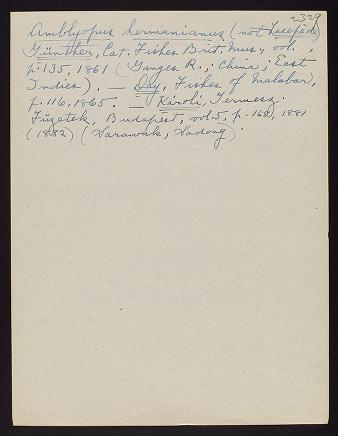 2329
Amblyopus hermanianus (not Lacepède)
Günther, Cat. Fishes Brit. Mus., vol. ,
p. 135, 1861 (Ganges R.; China; East
Indies). — Day, Fishes of Malabar,
p. 116, 1865. — Károli, Termesz.
Füzetek, Budapest, vol. 5, p. 168, 1881
(1882) (Sarawak, Sadong).